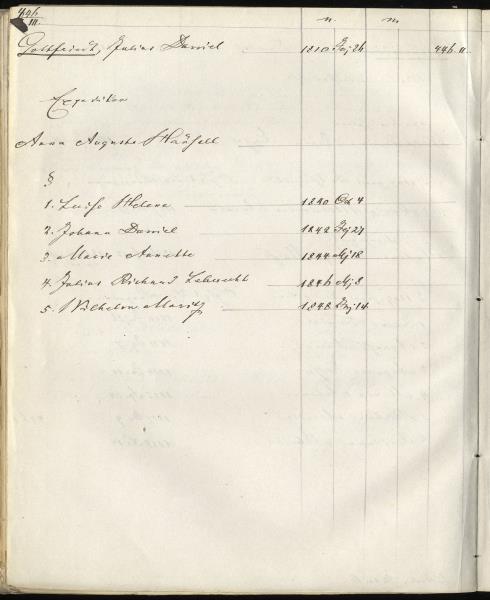 446
III.
n. m.
Gottfriedt, Julius Daniel 1810 26 446 II.
Expedition
Anna Auguste
§
1. Luise Helene 1840 Oct 4
2. Johann Daniel 1842 27
3. Marie Annette 1844 18
4. Julius Richard Leberecht 1846 8
5. Wilhelm Moritz 1848 14